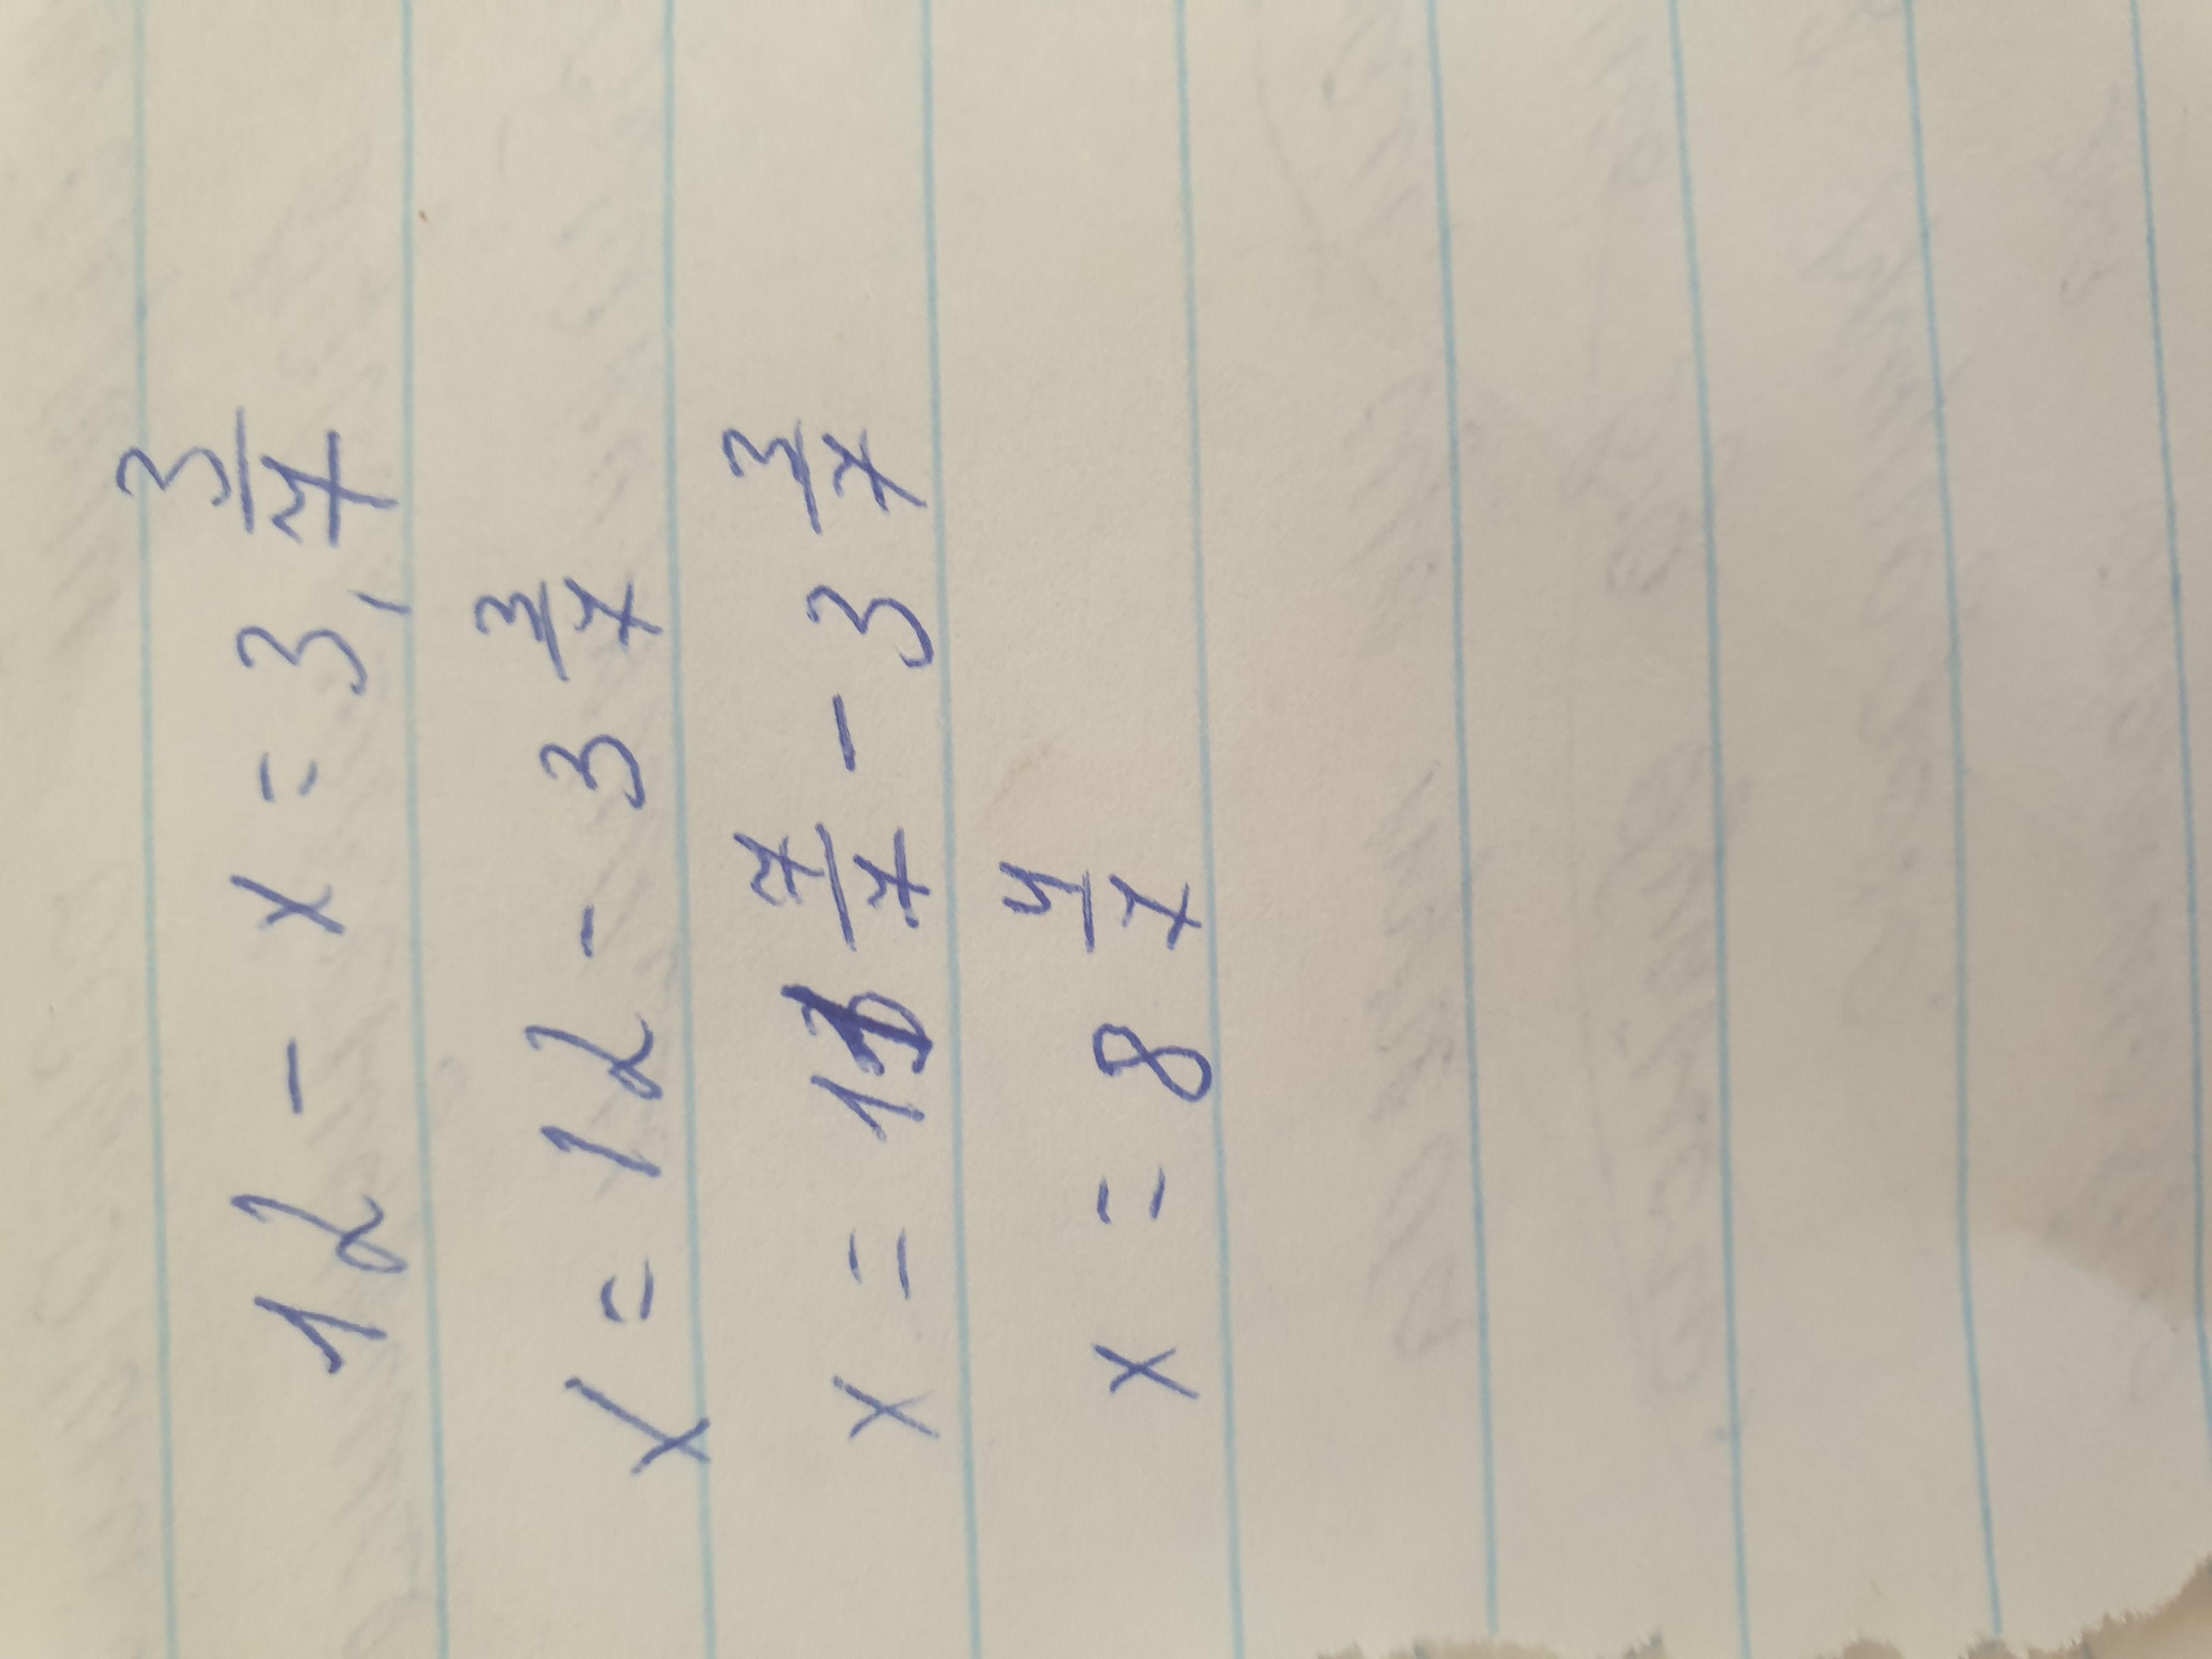 12 - x = 3, 3/7
x = 12 - 3 3/7
x = 11 7/7 - 3 3/7
x = 8 4/7